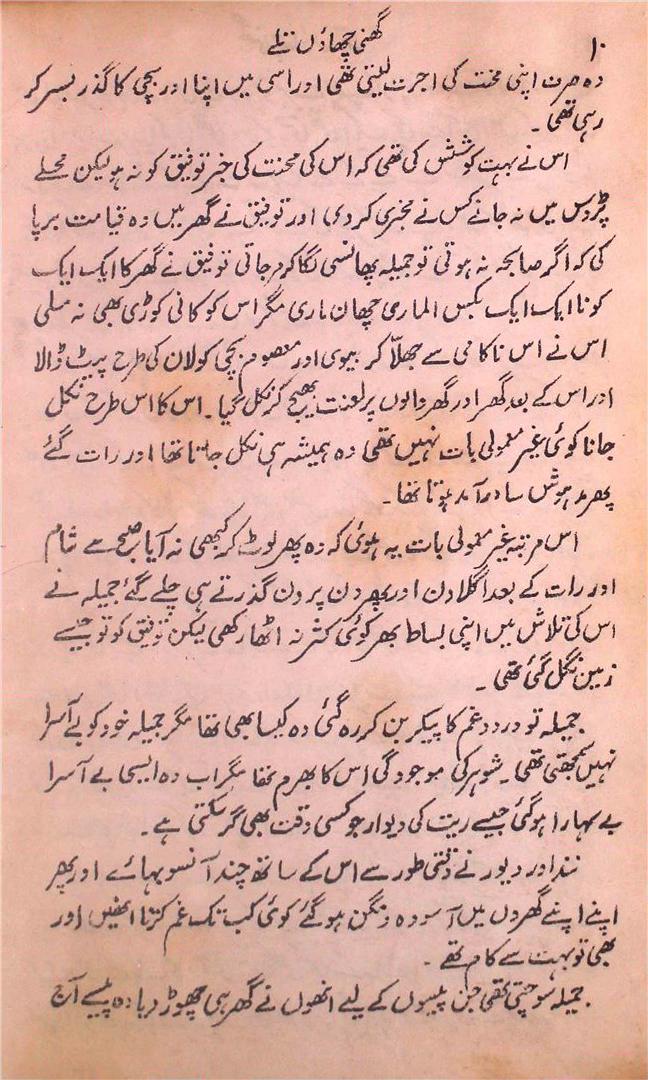 ۱۰
گھنی چھاؤں تلے
وہ صرف اپنی محنت کی اجرت لیتی تھی اور اسی میں اپنا اور بچی کا گذر بسر کر
رہی تھی۔
اس نے بہت کوشش کی تھی کہ اس کی محنت کی خبر توفیق کو نہ ہو لیکن محلے
پڑوس میں نہ جانے کس نے مخبری کر دی اور توفیق نے گھر میں وہ قیامت برپا
کی کہ اگر صابحہ نہ ہوتی تو جمیلہ پھانسی لگا کر مر جاتی توفیق نے گھر کا ایک ایک
کونا ایک ایک بکس الماری چھان ماری مگر اس کو کانی کوڑی بھی نہ ملی
اس نے اس ناکامی سے جھلّا کر بیوی اور معصوم بچی کو لان کی طرح پیٹ ڈالا
اور اس کے بعد گھر اور گھر والوں پر لعنت بھیج کر نکل گیا۔ اس کا اس طرح نکل
جانا کوئی غیر معمولی بات نہیں تھی وہ ہمیشہ ہی نکل جاتا تھا اور رات گئے
پھر مدہوش سا درآمد ہوتا تھا۔
اس مرتبہ غیر معمولی بات یہ ہوئی کہ وہ پھر لوٹ کر کبھی نہ آیا صبح سے شام
اور رات کے بعد اگلا دن اور پھر دن پر دن گذرتے ہی چلے گئے جمیلہ نے
اس کی تلاش میں اپنی بساط بھر کوئی کثر نہ اٹھا رکھی لیکن توفیق کو تو جیسے
زمین نگل گئی تھی۔
جمیلہ تو درد و غم کا پیکر بن کر رہ گئی وہ کیسا بھی تھا مگر جمیلہ خود کو بے آسرا
نہیں سمجھتی تھی۔ شوہر کی موجودگی اس کا بھرم تھا مگر اب وہ ایسی بے آسرا
بے سہارا ہو گئی جیسے ریت کی دیوار جو کسی وقت بھی گر سکتی ہے۔
نند اور دیور نے وقتی طور سے اس کے ساتھ چند آنسو بہائے اور پھر
اپنے اپنے گھروں میں آسودہ و مگن ہو گئے کوئی کب تک غم کرتا انھیں اور
بھی تو بہت سے کام تھے۔
جمیلہ سوچتی تھی جن پیسوں کے لیے انھوں نے گھر ہی چھوڑ دیا وہ پیسے آج